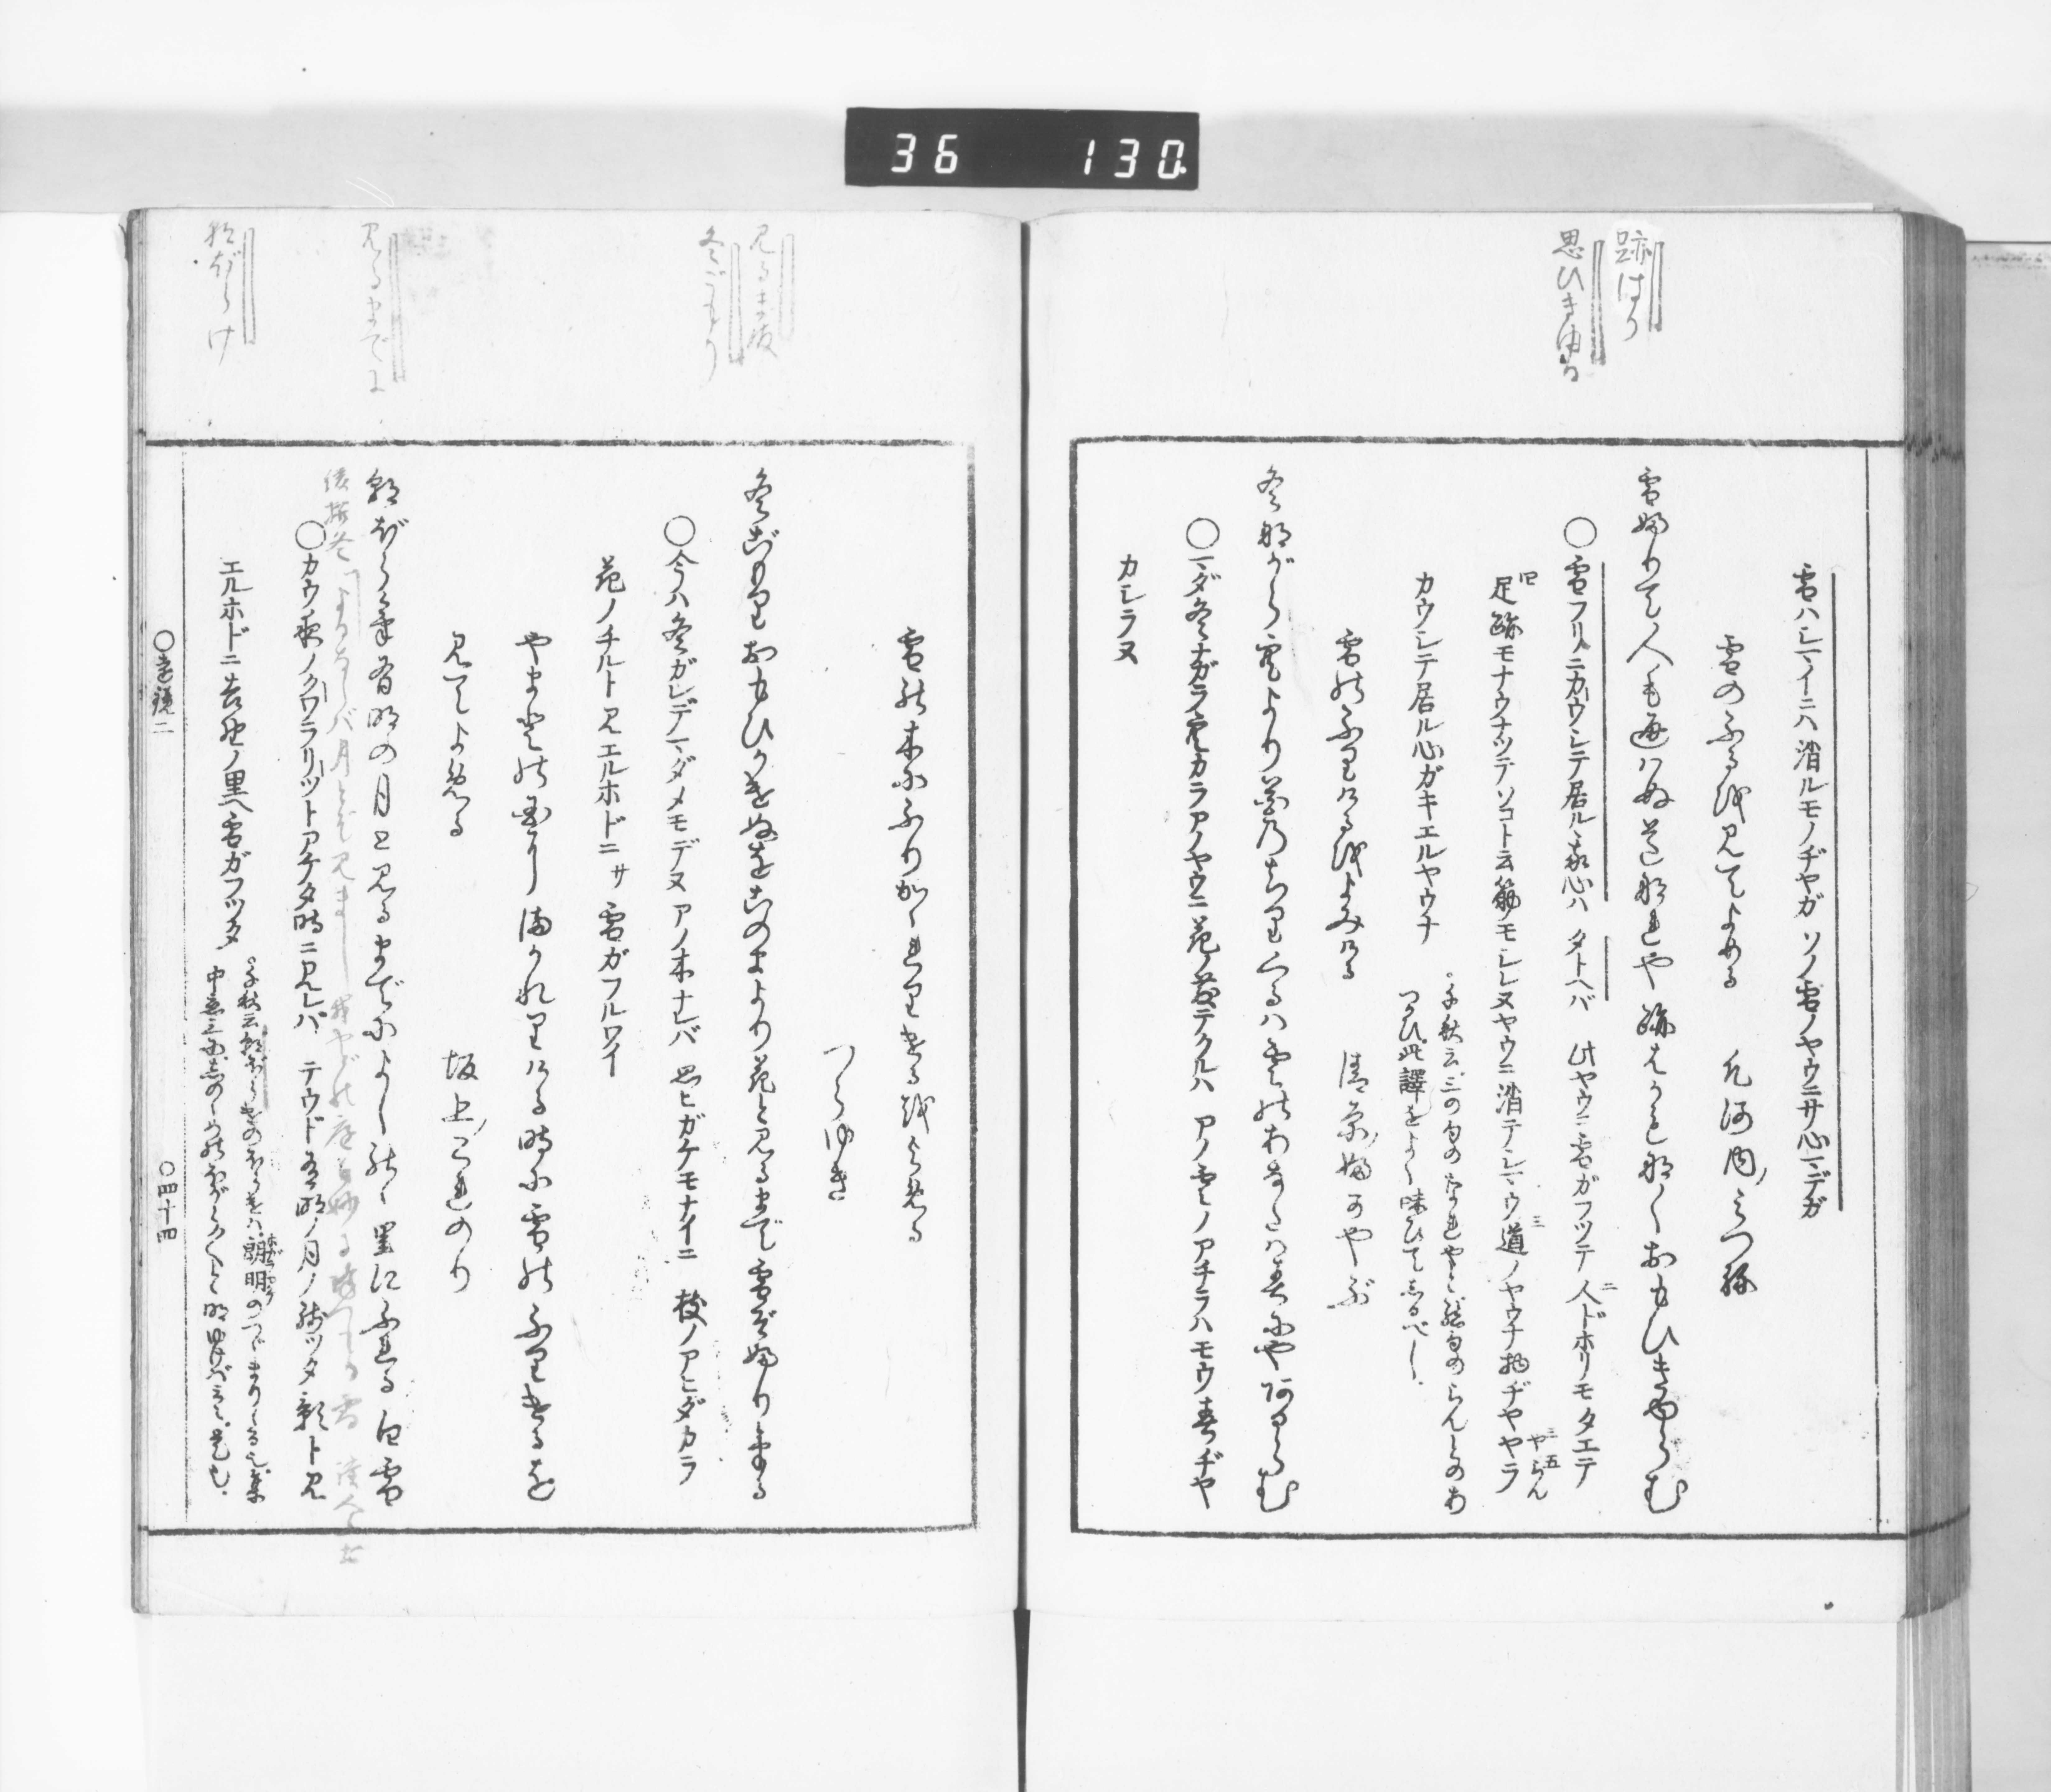 36 130
跡はか
思ひきゆらん
雪ハシマイニハ消ルモノヂヤガ ソノ雪ノヤウニサ心マデガ
雪のふる越見てよめる 凡河内ノみつ祢
雪婦りて人も通ハぬ道那連や跡者可も那くおもひきゆらむ
○雪フリニカウシテ居ル我心ハ タトヘバ 此ヤウニ雪ガフツテ人ドホリモタエテ
足跡モナウナツテソコト云筋モシレヌヤウニ消テシマウ道ノヤウナ物ヂヤヤラ
カウシテ居ル心ガキエルヤウナ
千秋云三の句のなれやと結句のらんとのあ
つかひ此譯をよく味ひてしるべし
雪能ふりける越よみける 清原ノ婦可やぶ
冬那がら空より花乃ちりくるハ雲能あなたハ春にや阿るらむ
○マダ冬ナガラ空カラアノヤウニ花ノ散テクルハ アノ雲ノアチラハモウ春ヂヤ
カシラヌ
見るま天
冬ごもり
見るまでに
朝ぼらけ
雪能木にふりかゝれりける越よめる
つらゆき
冬ごもりおもひかけぬをこのまより花と見るまで雪ぞ婦りける
○今ハ冬ガレデマダメモデヌ アノ木ナレバ 思ヒガケモナイニ 枝ノアヒダカラ
花ノチルト見エルホドニサ 雪ガフルワイ
やまと能国にまかれりける時に雪能ふりけるを
見てよめる 坂上ノこれのり
朝ぼらけ有明の月と見るまでによし能ゝ里にふれる白雪
○カウ夜ノクワラリツトアケタ時ニ見レバ テウド有明ノ月ノ残ツタ影ト見
エルホドニ吉野ノ里ヘ雪ガフツタ
千秋云朝ぼらけのほらけハ朗明のつゞまりたる也
○遠鏡二
○四十四